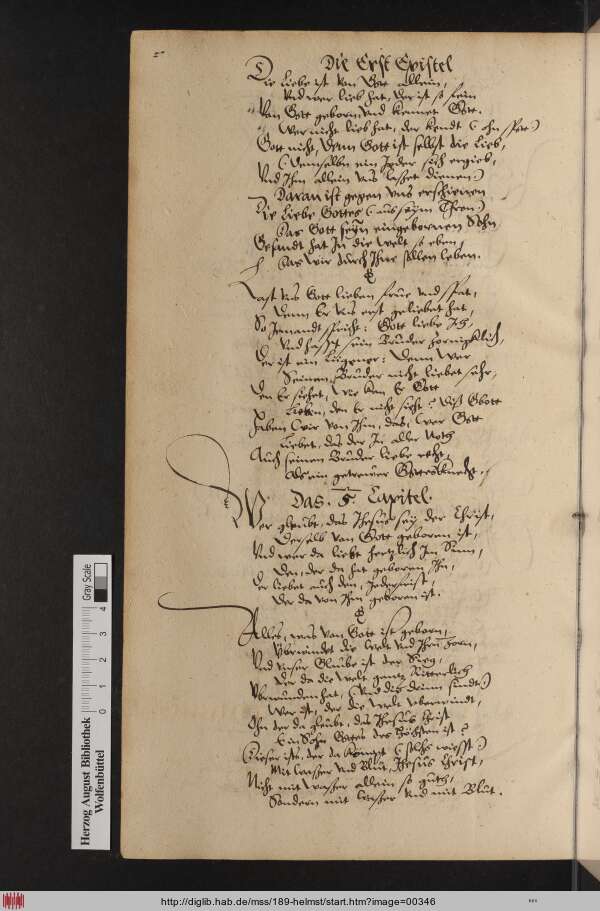 Die Erst Epistel
Die Liebe ist von Gott allein,
Und wer lieb hat, der ist so fein
Von Gott geborn, und kennet Gott.
Wer nicht lieb hat, der kendt (ohn spott)
Gott nicht, denn Gott ist selbst die Lieb,
(Demselbn ein Jeder sich ergieb,
Und Ihm allein uns lasset dienen.)
Daran ist gegen uns erschienen
Die Liebe Gottes (aus seym Thron)
Das Gott seyn eingebornen Sohn
Gesandt hat In die Welt so eben,
Das wir durch Ihne sollen leben.
Last uns Gott lieben frue und spat,
Denn Er uns erst geliebet hat,
So Jemandt spricht: Gott liebe Ich,
Und hasset sein Bruder
Der ist ein Lügener: Denn wer
Seinen Bruder nicht liebet sehr,
Den Er siehet, wie kan Er Gott
Lieben, den Er nicht sicht? Diß Gbott
Haben wir von Ihm, das, wer Gott
Liebet, das der In aller Noth
Auch seinen Bruder liebe recht,
Als ein getrewer Gottesknecht.
Das. 5. Capitel.
Wer gleubt, das Jhesus sey der Christ,
Derselb von Gott geboren ist,
Und wer da liebt hertzlich Im Sinn,
Den, der da hat geboren Ihn,
Der liebet auch den, Jederfrist,
Der da von Ihm geboren ist.
Alles, was von Gott ist geborn,
Uberwindet die Welt und Ihrn Zorn,
Und unser Glaube ist der Sieg,
Der da die Welt gantz Ritterlich
Uberwunden hat, (Und die drinn sindt.)
Wer ist, der die Welt uberwindt,
Ohn der da gleubt, das Jhesus Christ
Ein Sohn Gottes des Höchsten ist?
Dieser ists, der da kömpt (solchs wisst)
Mit Wasser und Blut, Jhesus Christ,
Nicht mit Wasser allein so gutt,
Sondern mit Wasser und mit Blut.
Herzog August Bibliothek
Wolfenbüttel
0 1 2 3 4
Gray Scale
http://diglib.hab.de/mss/189-helmst/start.htm?image=00346